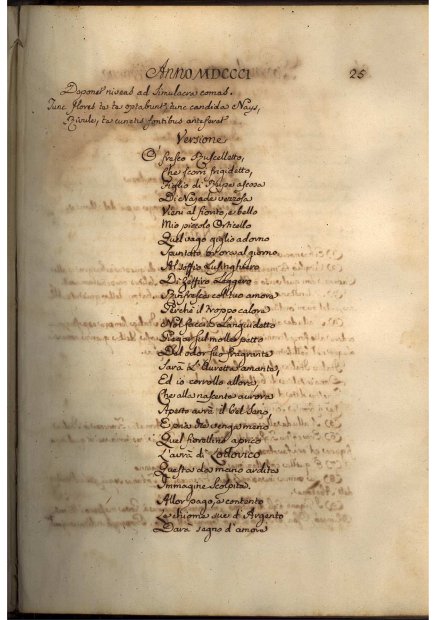 Anno MDCCCI 25
Deponet niveas ad Simulacra comas.
Tunc flores te te optabunt, tunc candida Nays,
Rivule, te cunctis fontibus anteferet
Versione
O' fresco Ruscelletto,
Che scorri frigidetto,
Figlio di Rupe ascosa
Di Najade vezzosa
Vieni al fionto, e bello
Mio piccolo Orticello
Quel vago giglio adorno
Spuntato or ora al giorno
Al soffio Lusinghiero
Di Zaffiro Leggero
Rinfresca col tuo amore
Perchè il troppo calore
Nol faccia Languidetto
Piegar sul molle petto
Del odor suo fragrante
Sarà l'Auretta amante,
Ed io corrollo allora,
Che alla nascente aurora
Aperto avrà il bel Seno,
E pria che venga meno
Quel horolino aprico
L'avrà di Lodovico
Questa da mano ardita
Immagine Scolpita.
Allor pago, e contento
Le chiome sue d'Argento
Darà segno d'amore